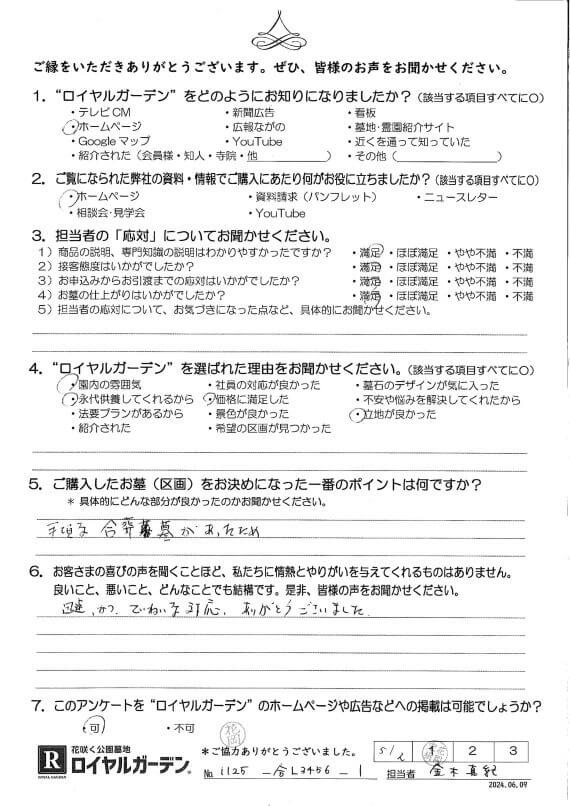 ご縁をいただきありがとうございます。ぜひ、皆様のお声をお聞かせください。
1. “ロイヤルガーデン”をどのようにお知りになりましたか？(該当する項目すべてに○)
・テレビCM ・新聞広告 ・看板
・ホームページ ・広報ながの ・墓地・霊園紹介サイト
・Googleマップ ・YouTube ・近くを通って知っていた
・紹介された（会員様・知人・寺院・他　　　） ・その他（　　　）
2. ご覧になられた弊社の資料・情報でご購入にあたり何がお役に立ちましたか？(該当する項目すべてに○)
・ホームページ ・資料請求（パンフレット） ・ニュースレター
・相談会・見学会 ・YouTube
3. 担当者の「応対」についてお聞かせください。
1）商品の説明、専門知識の説明はわかりやすかったですか？ ・満足 ・ほぼ満足 ・やや不満 ・不満
2）接客態度はいかがでしたか？ ・満足 ・ほぼ満足 ・やや不満 ・不満
3）お申込みからお引渡までの応対はいかがでしたか？ ・満足 ・ほぼ満足 ・やや不満 ・不満
4）お墓の仕上がりはいかがでしたか？ ・満足 ・ほぼ満足 ・やや不満 ・不満
5）担当者の応対について、お気づきになった点など、具体的にお聞かせください。
4. “ロイヤルガーデン”を選ばれた理由をお聞かせください。(該当する項目すべてに○)
・園内の雰囲気 ・社員の対応が良かった ・墓石のデザインが気に入った
・永代供養してくれるから ・価格に満足した ・不安や悩みを解決してくれたから
・法要プランがあるから ・景色が良かった ・立地が良かった
・紹介された ・希望の区画が見つかった
5. ご購入したお墓（区画）をお決めになった一番のポイントは何ですか？
＊ 具体的にどんな部分が良かったのかお聞かせください。
手頃な 合葬墓があったため
6. お客さまの喜びの声を聞くことほど、私たちに情熱とやりがいを与えてくれるものはありません。
良いこと、悪いこと、どんなことでも結構です。是非、皆様の声をお聞かせください。
迅速、かつ、ていねいな対応、ありがとうございました。
7. このアンケートを“ロイヤルガーデン”のホームページや広告などへの掲載は可能でしょうか？
・可 ・不可
R ROYAL GARDEN 花咲く公園墓地
ロイヤルガーデン®
＊ご協力ありがとうございました。
5/2 1 2 3
No 1125 -合L3456 - 1 担当者 金木真紀
2024.06.09